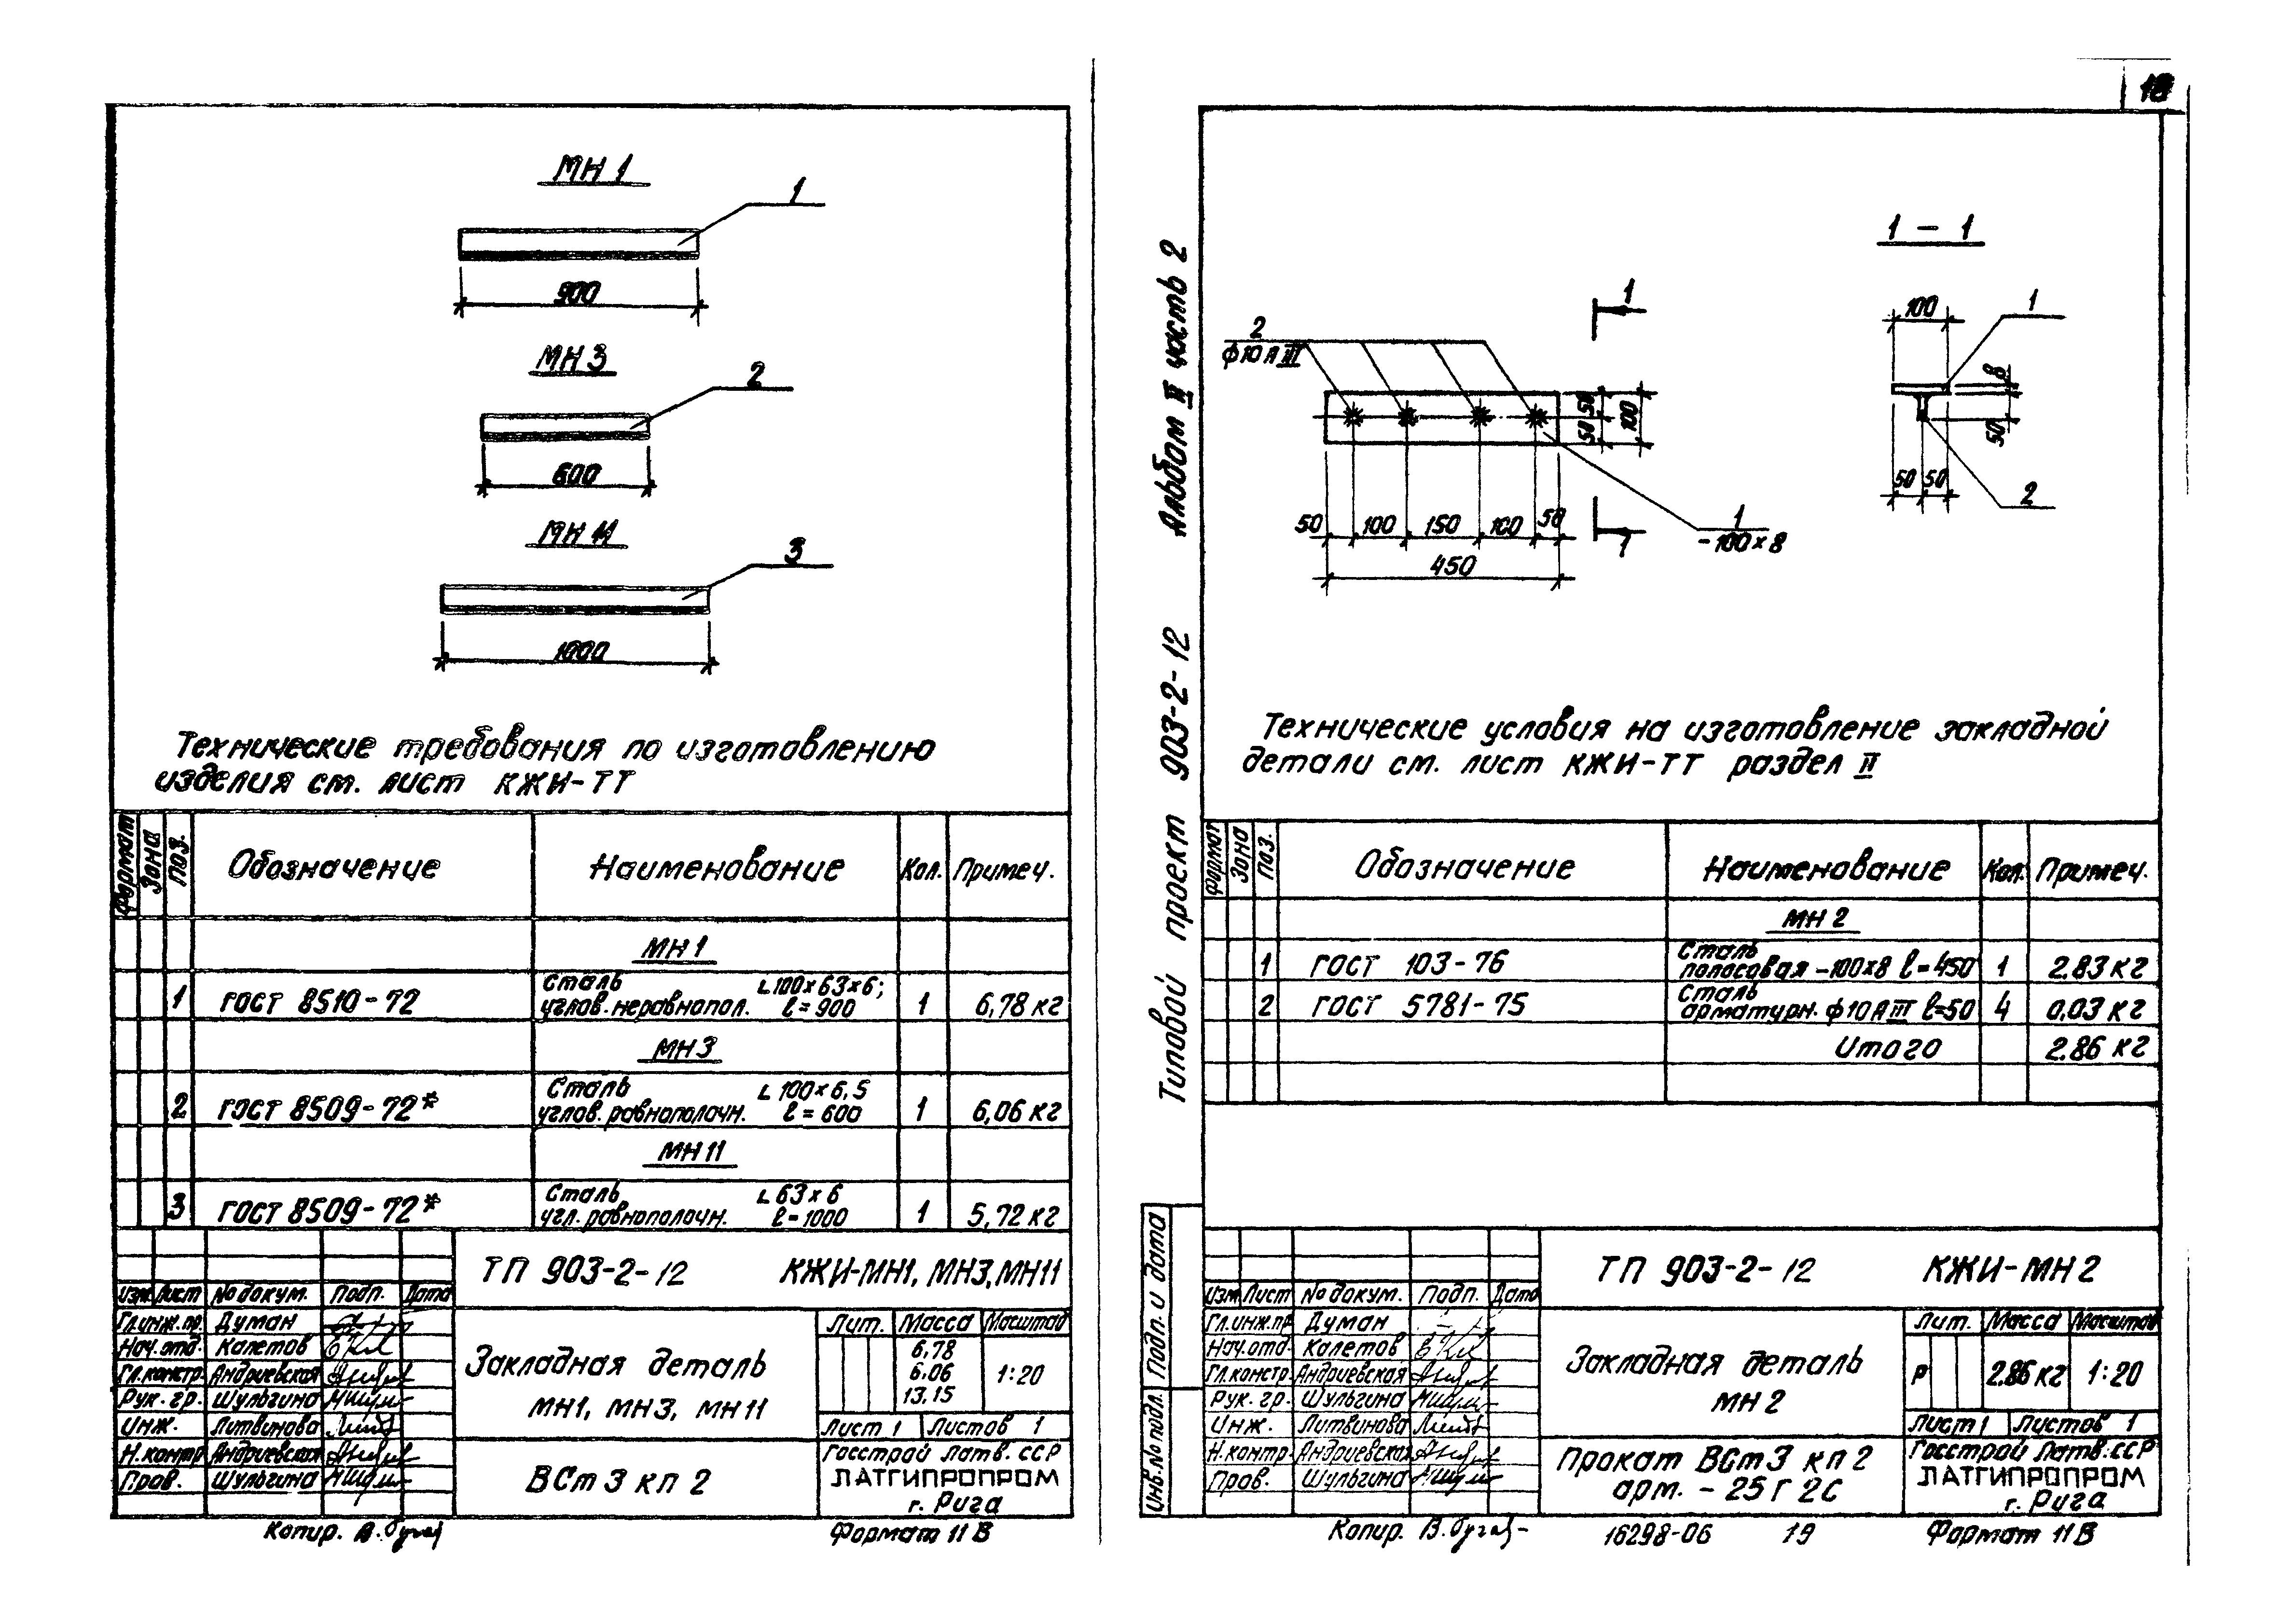 18
МН 1
1
900
МН 3
2
600
МН 11
3
1000
Технические требования по изготовлению
изделия см. лист КЖИ-ТТ
Формат Зона Поз. Обозначение Наименование Кол. Примеч.
МН 1
1 ГОСТ 8510-72 Сталь углов. неравнопол. ∟100×63×6; ℓ=900 1 6,78 кг
МН 3
2 ГОСТ 8509-72* Сталь углов. равнополочн. ∟100×6,5 ℓ=600 1 6,06 кг
МН 11
3 ГОСТ 8509-72* Сталь угл. равнополочн. ∟63×6 ℓ=1000 1 5,72 кг
ТП 903-2-12 КЖИ-МН1, МН3, МН11
Изм. Лист № докум. Подп. Дата
Гл.инж.пр. Думан
Нач.отд. Калетов
Гл.констр. Андриевская
Рук. гр. Шульгина
Инж. Литвинова
Н.контр Андриевская
Пров. Шульгина
Закладная деталь
МН1, МН3, МН11
Лит. Масса Масштаб
6,78
6,06
13,15
1:20
Лист 1 Листов 1
ВСт 3 кп 2
Госстрой Латв. ССР
ЛАТГИПРОПРОМ
г. Рига
Копир. В.
Формат 11 В
Типовой проект 903-2-12 Альбом II часть 2
Подп. и дата
Инв.№ подл.
1 – 1
1
1
2
ф10 А III
50
50
100
50 100 150 100 50
450
1
-100×8
100
1
8
50
50 50
2
Технические условия на изготовление закладной
детали см. лист КЖИ-ТТ раздел II
Формат Зона Поз. Обозначение Наименование Кол. Примеч.
МН 2
1 ГОСТ 103-76 Сталь полосовая -100×8 ℓ=450 1 2.83 кг
2 ГОСТ 5781-75 Сталь арматурн. ф10 А III ℓ=50 4 0.03 кг
Итого 2.86 кг
ТП 903-2-12 КЖИ-МН 2
Изм Лист № докум. Подп. Дата
Гл.инж.пр Думан
Нач.отд. Калетов
Гл.констр. Андриевская
Рук. гр. Шульгина
Инж. Литвинова
Н.контр Андриевская
Пров. Шульгина
Закладная деталь
МН 2
Лит. Масса Масштаб
Р 2.86 кг 1:20
Лист 1 Листов 1
Прокат ВСт 3 кп 2
арм. - 25 Г 2С
Госстрой Латв. ССР
ЛАТГИПРОПРОМ
г. Рига
Копир. В.
16298-06 19
Формат 11 В